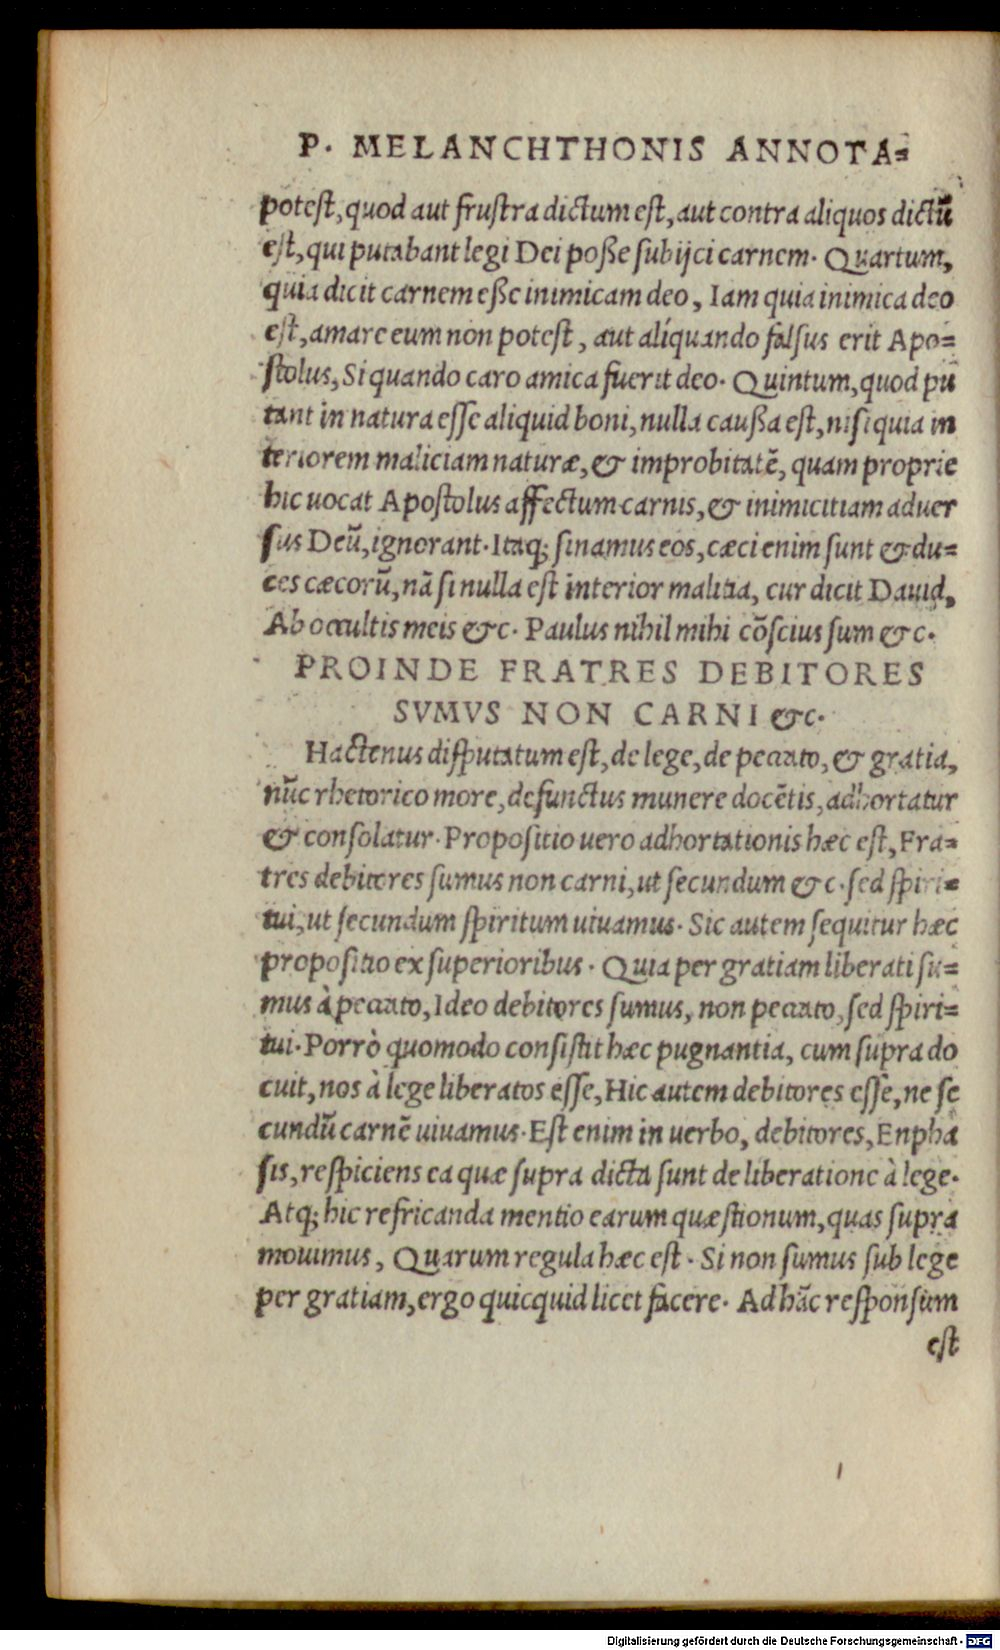 P. MELANCHTHONIS ANNOTA=
potest, quod aut frustra dictum est, aut contra aliquos dictū
est, qui putabant legi Dei posse subijci carnem. Quartum,
quia dicit carnem esse inimicam deo, Iam quia inimica deo
est, amare eum non potest, aut alíquando falsus erit Apo=
stolus, Si quando caro amica fuerit deo. Quintum, quod pu
tant in natura esse aliquid boni, nulla caussa est, nisi quia in
teriorem maliciam naturæ, & improbitatē, quam proprie
hic uocat Apostolus affectum carnis, & inimicitiam aduer
sus Deū, ignorant. Itaq; sinamus eos, cæci enim sunt & du=
ces cæcorū, nā si nulla est interior malitia, cur dicit Dauid,
Ab occultis meis &c. Paulus nihil mihi cōscius sum &c.
PROINDE FRATRES DEBITORES
SVMVS NON CARNI &c.
Hactenus disputatum est, de lege, de peccato, & gratia,
nūc rhetorico more, defunctus munere docētis, adhortatur
& consolatur. Propositio uero adhortationis hæc est, Fra=
tres debitores sumus non carni, ut secundum &c. sed spiri=
tui, ut secundum spiritum uiuamus. Sic autem sequitur hæc
propositio ex superioribus. Quia per gratiam liberati su=
mus à peccato, Ideo debitores sumus, non peccato, sed spiri=
tui. Porrò quomodo consistit hæc pugnantia, cum supra do
cuit, nos à lege liberatos esse, Hic autem debitores esse, ne se
cundū carnē uiuamus. Est enim in uerbo, debitores, Enpha
sis, respiciens ea quæ supra dicta sunt de liberatione à lege.
Atq; hic refricanda mentio earum quæstionum, quas supra
mouimus, Quarum regula hæc est. Si non sumus sub lege
per gratiam, ergo quicquid licet facere. Ad hāc responsum
est
Digitalisierung gefördert durch die Deutsche Forschungsgemeinschaft - DFG